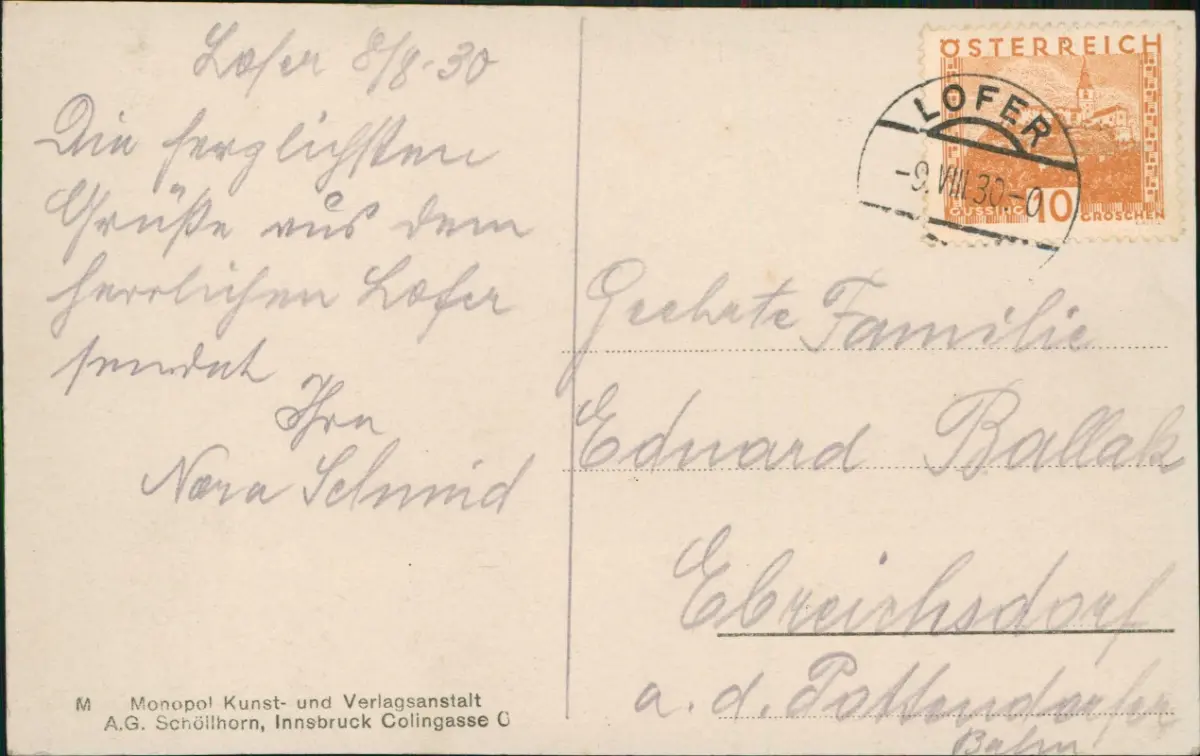 Lofer 8/8.30
Die herzlichsten
Grüße aus dem
herrlichen Lofer
sendet
Ihre
Nora Schmid
M Monopol Kunst- und Verlagsanstalt
A.G. Schöllhorn, Innsbruck Colingasse
ÖSTERREICH
LOFER
-9.VIII.30-0
GÜSSING 10 GROSCHEN
Geehrte Familie
Eduard Ballak
Ebreichsdorf
a. d. Pottendorfer
Bahn